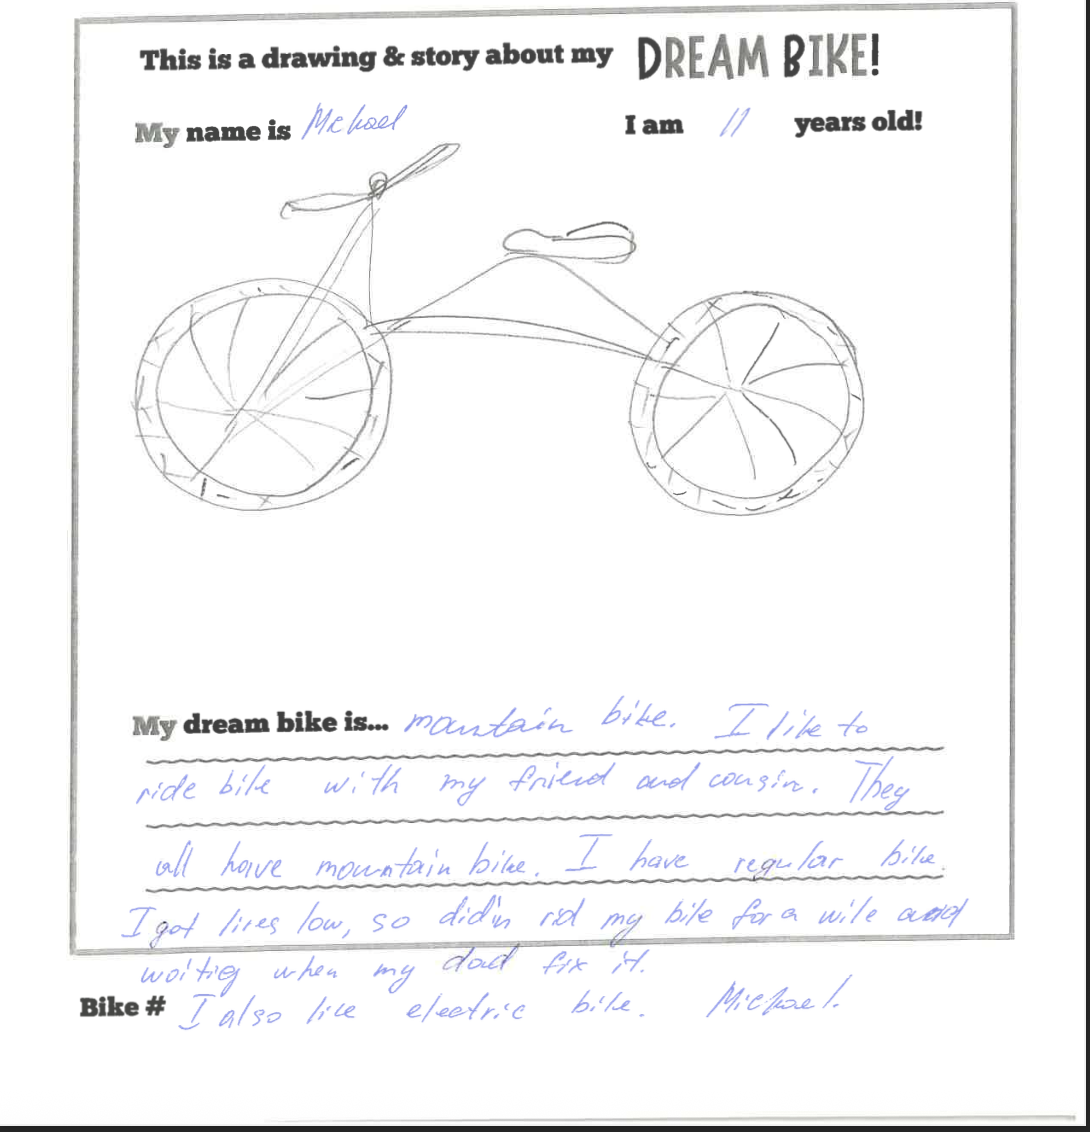 This is a drawing & story about my DREAM BIKE!
My name is Michael I am 11 years old!
My dream bike is... mountain bike. I like to
ride bike with my friend and cousin. They
all have mountain bike. I have regular bike.
I got tires low, so didin rid my bike for a wile and
woitig when my dad fix it.
Bike # I also like electric bike. Michael.